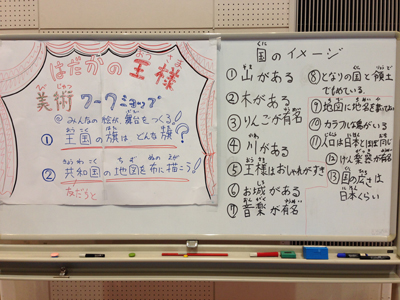 はだかの王様
美術ワークショップ
@みんなの絵が、舞台をつくる!
① 王国の旗はどんな旗?
② 共和国の地図を布に描こう!
国のイメージ
① 山がある
② 木がある
③ りんごが有名
④ 川がある
⑤ 王様はおしゃれがすき
⑥ お城がある
⑦ 音楽が有名
⑧ となりの国と領土
でもめている。
⑨ 地図に地名を書いて
⑩ カラフルな島がいる
⑪ 人口は日本とほぼ同じ
⑫ けん楽器が有名
⑬ 国の広さは
日本くらい